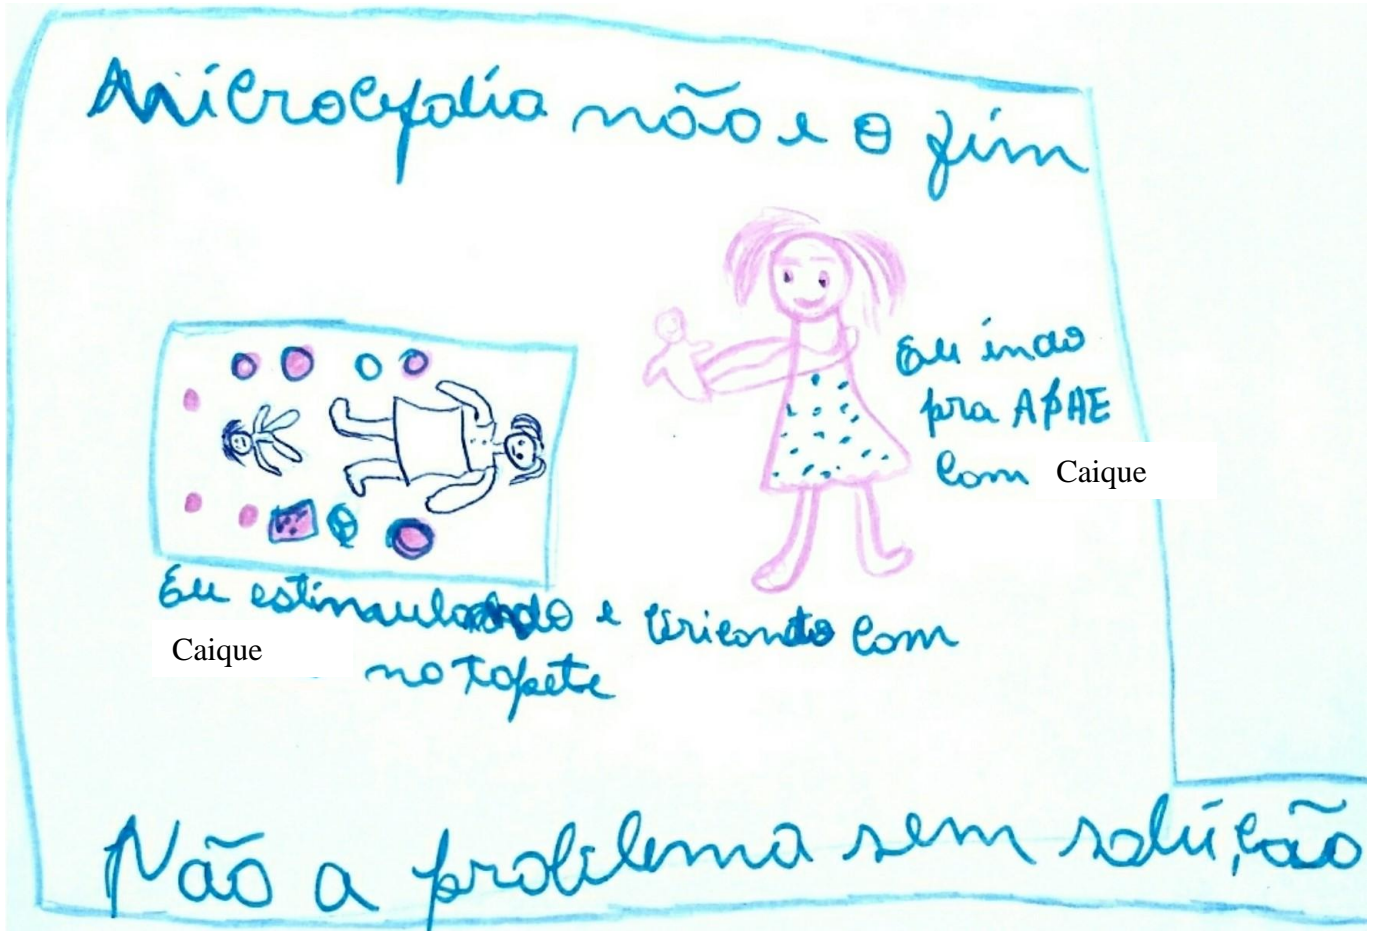 Microcefalia não e o fim
Eu indo
pra APAE
com Caique
Eu estimulando e bricando com
Caique no tapete
Não a problema sem solução